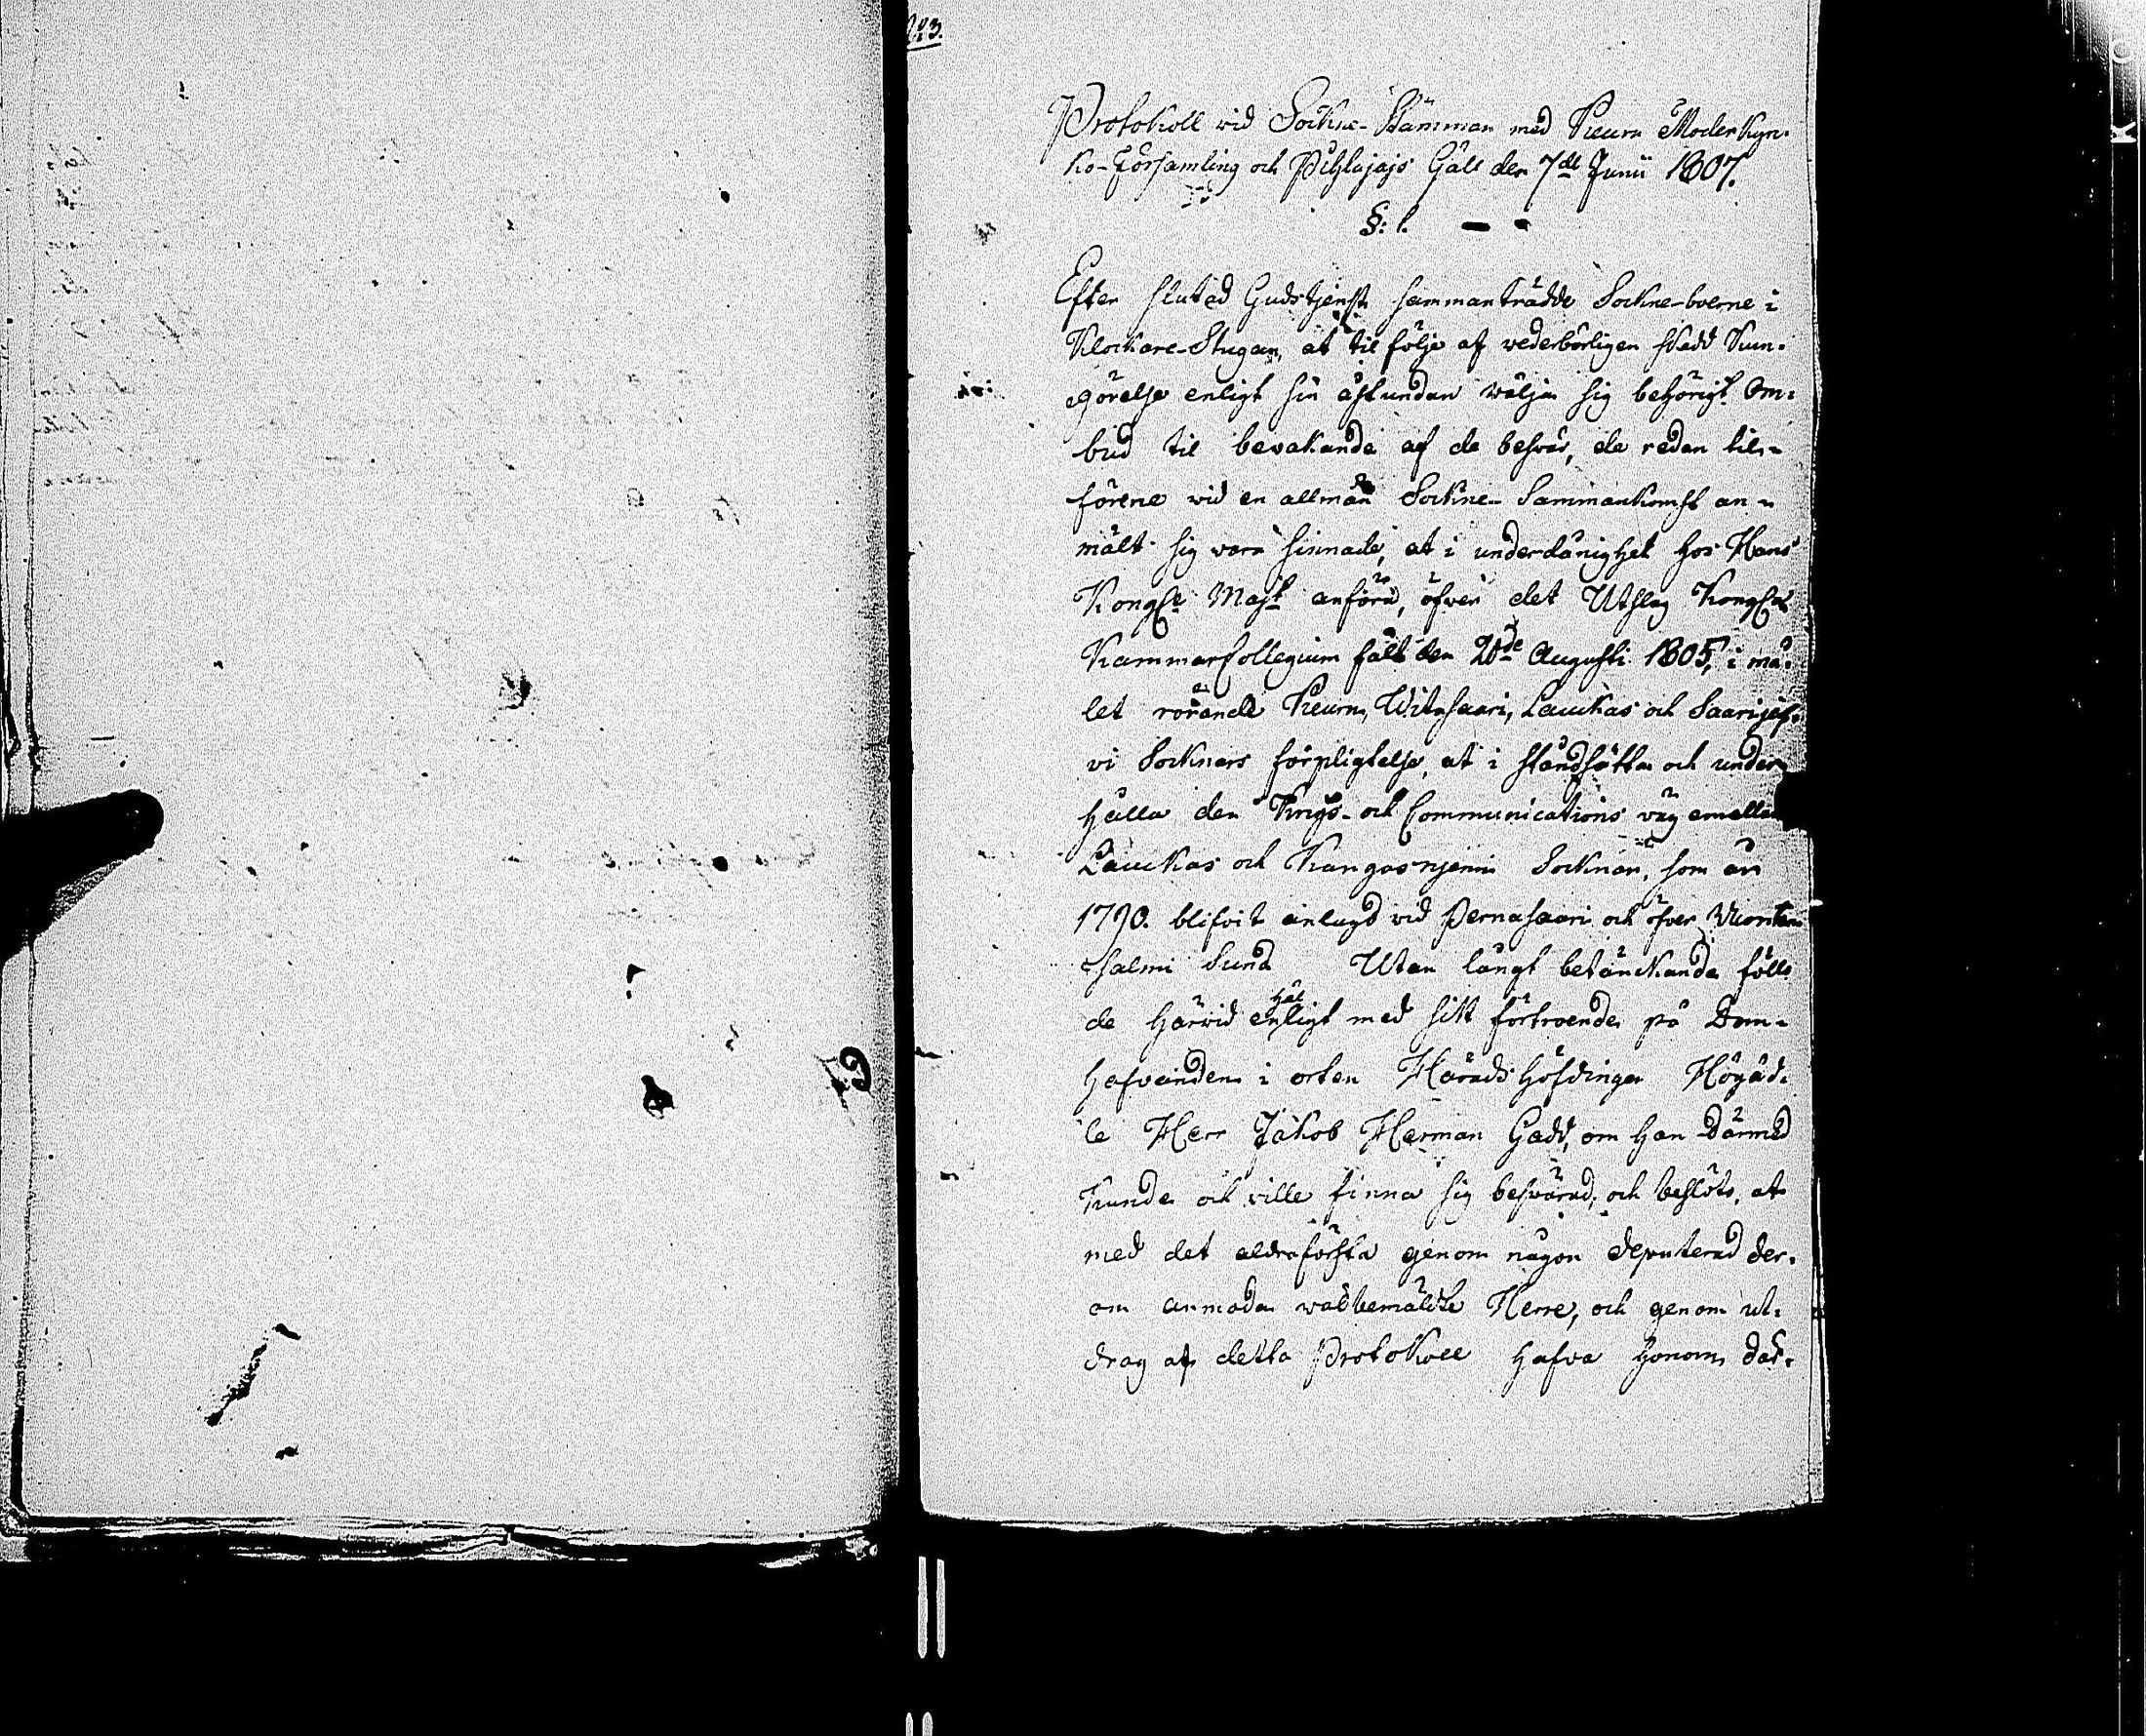 N:3.
Protokoll wid Sockne-Stämman med Keuru Moderkyr-
ko-Församling och Pihlajajs Gäll den 7de Junii 1807.
§: 1.
Efter slutad Gudstjenst sammanträdde Sockne-boerne i
Klockare-Stugan, at til följe af wederbörligen skedd Kun-
görelse enligt sin åstundan wälja sig behörigt Om-
bud til bevakande af de besvär, de redan til-
förene wid en allmän Sockne-Sammankomst an-
mält sig vara sinnade, at i underdånighet hos Hans
Kongl. Majt anföra, öfver det Utslag Kongl.
Kammarcollegium fält den 20de Augusti 1805, i må-
let rörande Keuru, Witasaari, Laukas och Saarijär-
vi Socknars förpligtelse, at i ståndsätta och under-
hålla den Krigs- och Communications väg emellan
Laukas och Kangasnjemi Socknar, som år
1790. blifvit anlagd vid Pernasaari och öfver Vuonten
salmi Sund Utan långt betänckande föllo
de härvid enhälligt med sitt förtroende på Dom-
hafvanden i orten Häradshöfdingen Högäd-
le Herr Jakob Herman Gadd, om han därmed
kunde och ville finna sig besvärad, och beslöts, at
med det aldraförsta genom någon deputerad der-
om anmoda wälbemälte Herre, och genom ut-
drag af detta Protokoll hafva honom där-